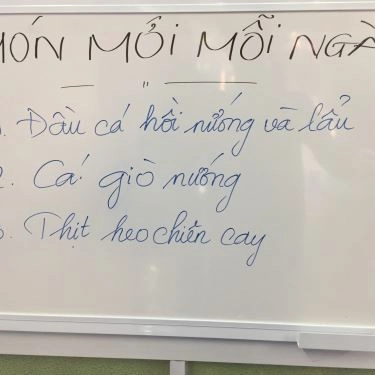 MÓN MỎI MỖI NGÀ
"
. Đầu cá hồi nướng và lẩu
2. Cá giò nướng
3. Thịt heo chiên cay